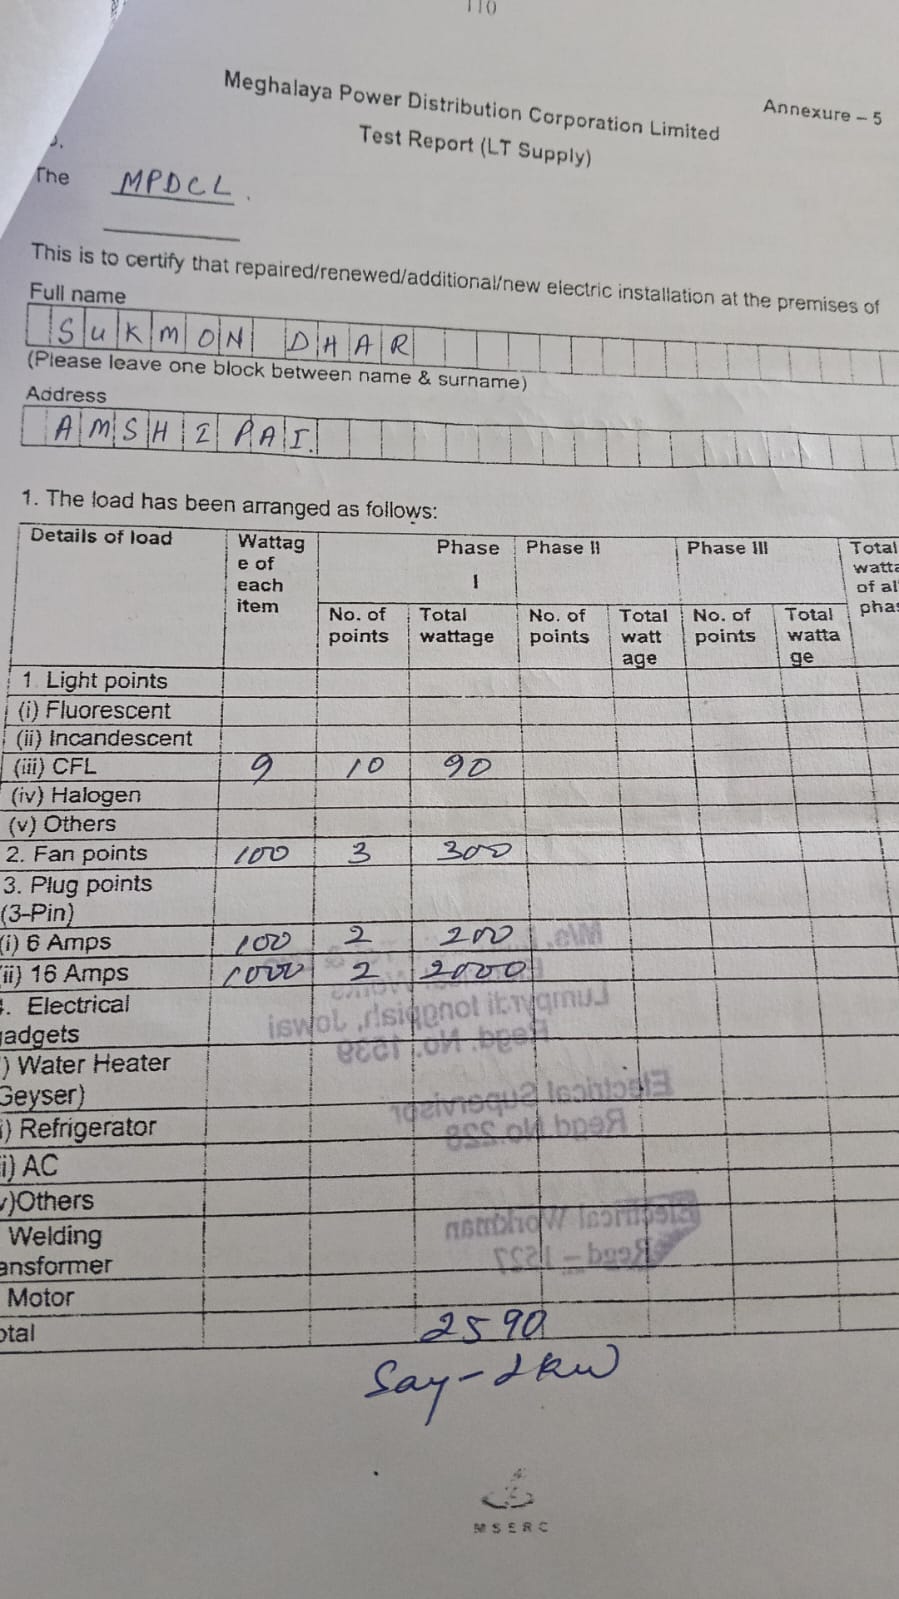 110
Annexure – 5
Meghalaya Power Distribution Corporation Limited
Test Report (LT Supply)
The MPDCL.
This is to certify that repaired/renewed/additional/new electric installation at the premises of
Full name
SUKMON DHAR
(Please leave one block between name & surname)
Address
AMSHI PAI.
1. The load has been arranged as follows:
Details of load Wattag e of each item Phase I Phase II Phase III Total
No. of points Total wattage No. of points Total watt age No. of points Total watta ge
1. Light points
(i) Fluorescent
(ii) Incandescent
(iii) CFL 9 10 90
(iv) Halogen
(v) Others
2. Fan points 100 3 300
3. Plug points
(3-Pin)
(i) 6 Amps 100 2 200
ii) 16 Amps 1000 2 2000
. Electrical
adgets
) Water Heater
Geyser)
i) Refrigerator
i) AC
)Others
Welding
ansformer
Motor
otal 2590
Say - 2kW
Lumpyrti Iongpiah, Jowai
Regd. No. 1639
Electrical Supervisor
Regd No.228
Electrical Workman
Regd – 1527
MSERC